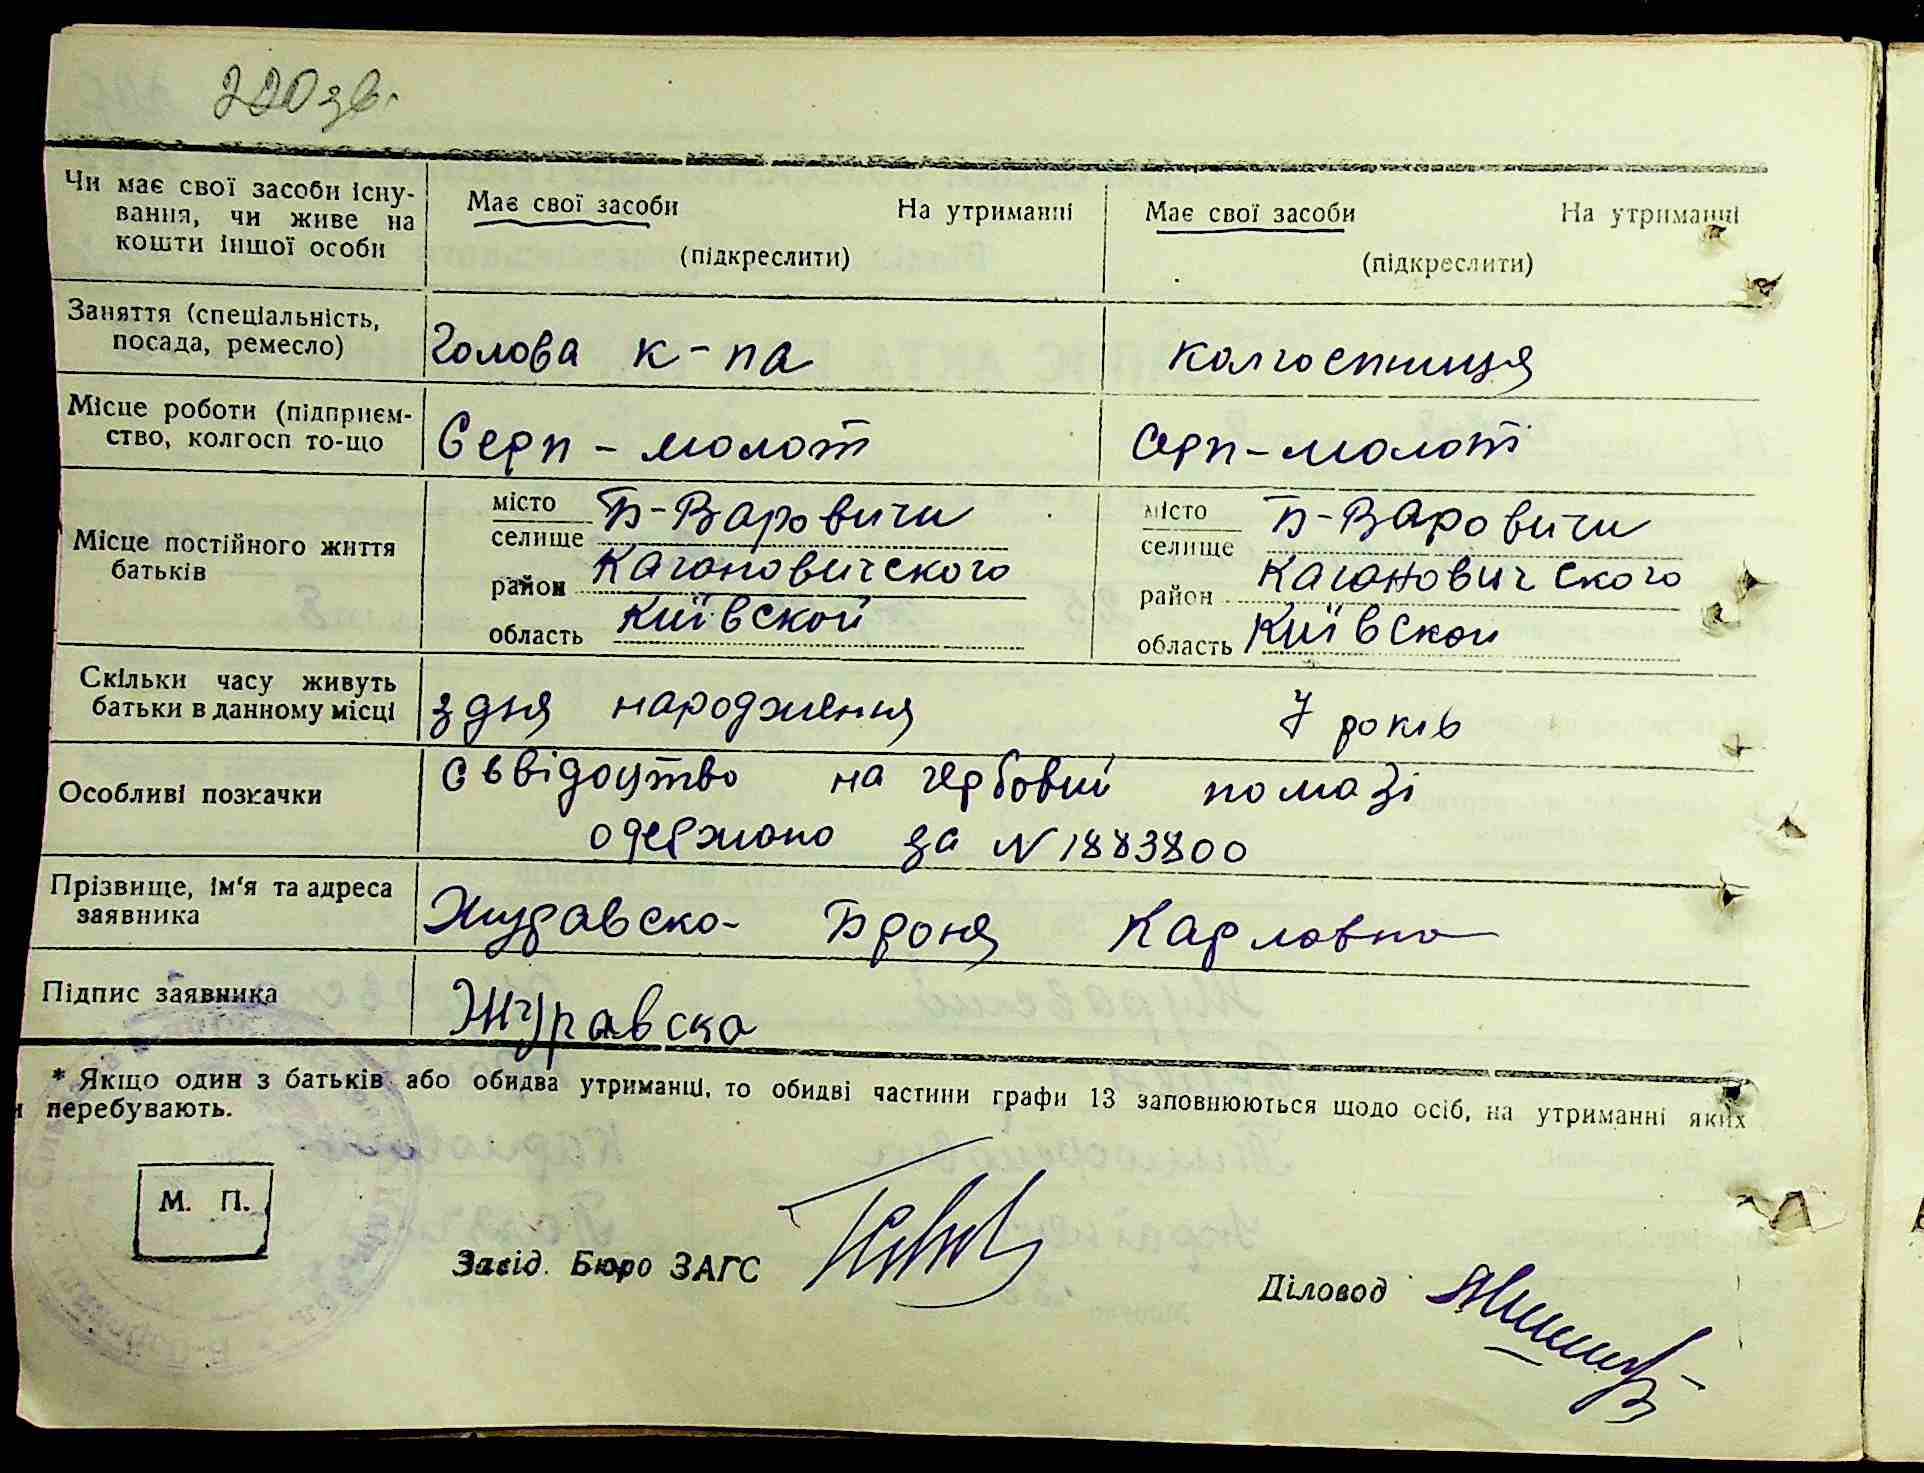 220 зв.
Чи має свої засоби існу-
вання, чи живе на
кошти іншої особи
Має свої засоби На утриманні
(підкреслити)
Має свої засоби На утриманні
(підкреслити)
Заняття (спеціальність,
посада, ремесло)
Голова к-па
колгоспниця
Місце роботи (підприєм-
ство, колгосп то-що
Серп - молот
серп - молот
Місце постійного життя
батьків
місто
селище
Б-Варовичи
район Кагановичского
область Київской
місто
селище
Б-Варовичи
район Кагановичского
область Київской
Скільки часу живуть
батьки в данному місці
з дня народження
7 років
Особливі позначки
Сввідоцтво на гербовий помазі
одержано за N 1883800
Прізвище, ім'я та адреса
заявника
Журавска Броня Карловна
Підпис заявника
Журавска
* Якщо один з батьків або обидва утриманці, то обидві частини графи 13 заповнюються щодо осіб, на утриманні яких
перебувають.
М. П.
Завід. Бюро ЗАГС
Діловод